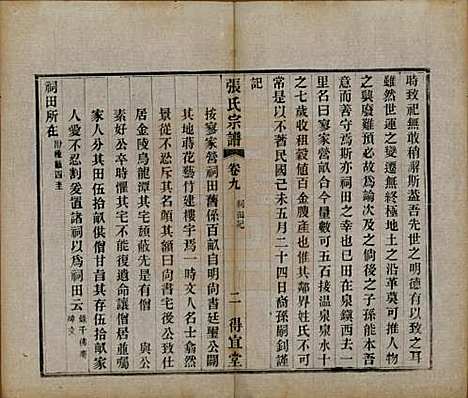 時致祀無敢稍瀨斯蓋吾先世之明德有以致之耳
雖然世運之變遷無終極地土之沿革莫可推人物
之興廢難預必故爲論次及之倘後之子孫能休吾
意而善守焉斯亦祠田之幸也其田在泉鎮西去一
里許與寡家營畝合今量數可五石接温泉泉水十
之七歲收租穀百金腴產也惟其鄰界姓氏不可
常是以不著民國己未五月二十四日裔孫嗣釗謹
記
張氏宗譜
卷九
祠田記
二
得宜堂
按寡家營祠田舊係百畝有尚書廷璽公闢
其地蒔花藝竹建樓字爲一時文人名士翕然
景從不忍斥其名顏其額曰尚書宅後公致仕
居金陵烏龍潭其宅子蔽先是有僧甘吉與公
素好公卒時懼其宅不能復遺命讓僧居並囑
家人分其田五十畝以供僧甘吉與其五十畝家
人愛不忍割爰置諸祠以爲祠田云
錄千佛菴碑文
祠田所在
附後縣四圭